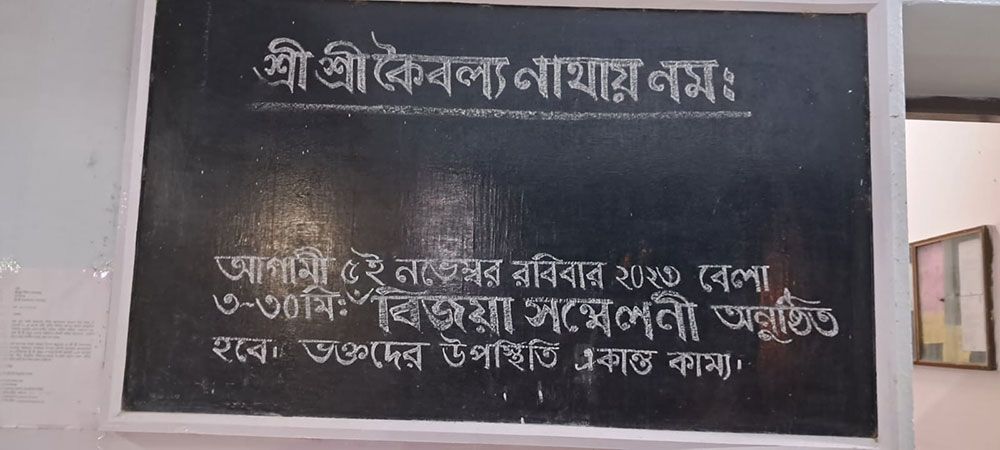 শ্রী শ্রী কৈবল্য নাথায় নমঃ
আগামী ৫ই নভেম্বর রবিবার ২০২৩ বেলা
৩-৩০মিঃ বিজয়া সম্মেলনী অনুষ্ঠিত
হবে। ভক্তদের উপস্থিতি একান্ত কাম্য।